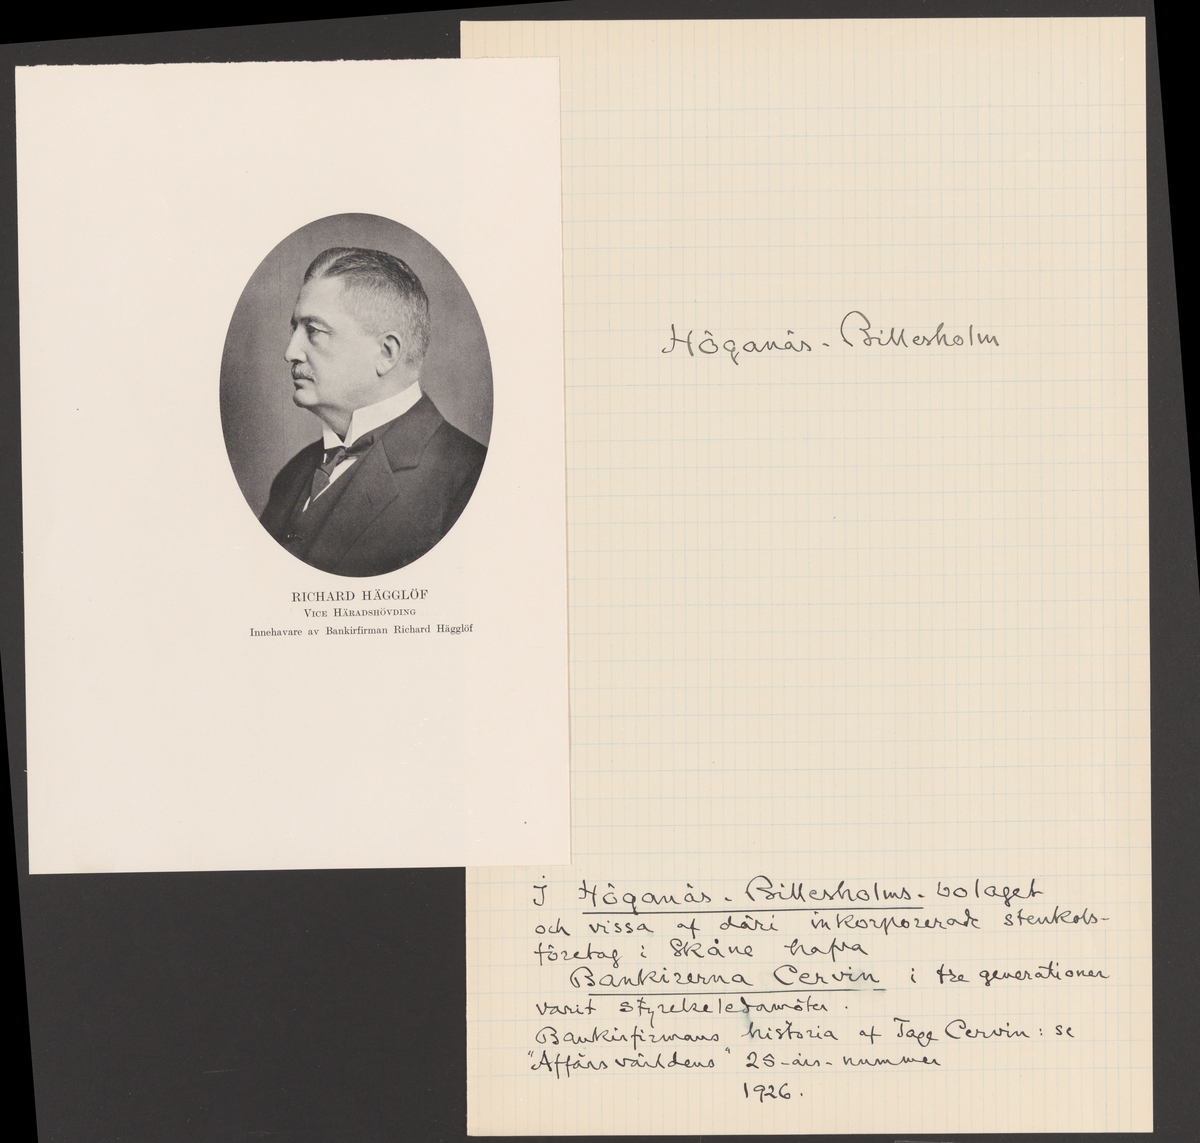 RICHARD HÄGGLÖF
VICE HÄRADSHÖVDING
Innehavare av Bankirfirman Richard Hägglöf
Höganäs - Billesholm
I Höganäs - Billesholms - bolaget
och vissa af däri inkorporerade stenkols-
företag i Skåne hafva
Bankirerna Cervin i tre generationer
varit styrelseledamöter.
Bankirfirmans historia af Tage Cervin: se
"Affärsvärldens" 25-års-nummer
1926.